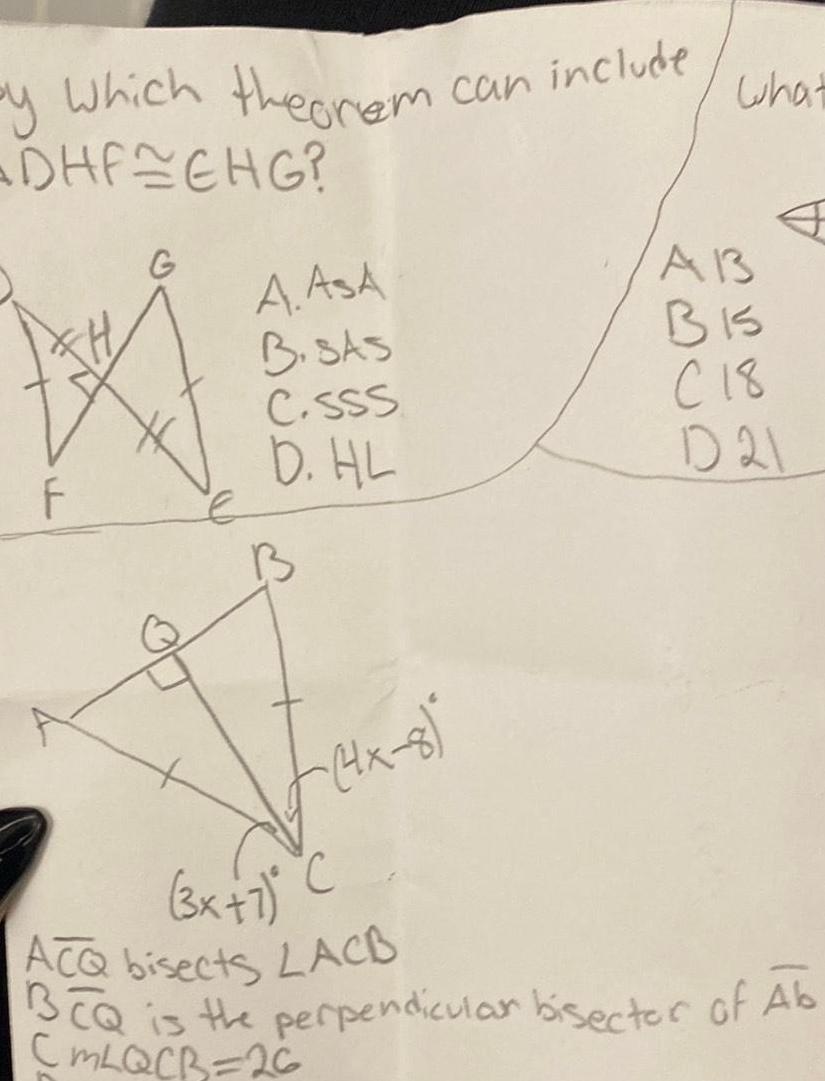 by which theorem can include
ΔDHF≅EHG?
D
G
H
F
E
A. ASA
B. SAS
C. SSS
D. HL
what
A 13
B 15
C 18
D 21
B
Q
A
(4x-8)°
(3x+7)°
C
A CQ bisects ∠ACB
B CQ is the perpendicular bisector of Ab
C m∠QCB=26